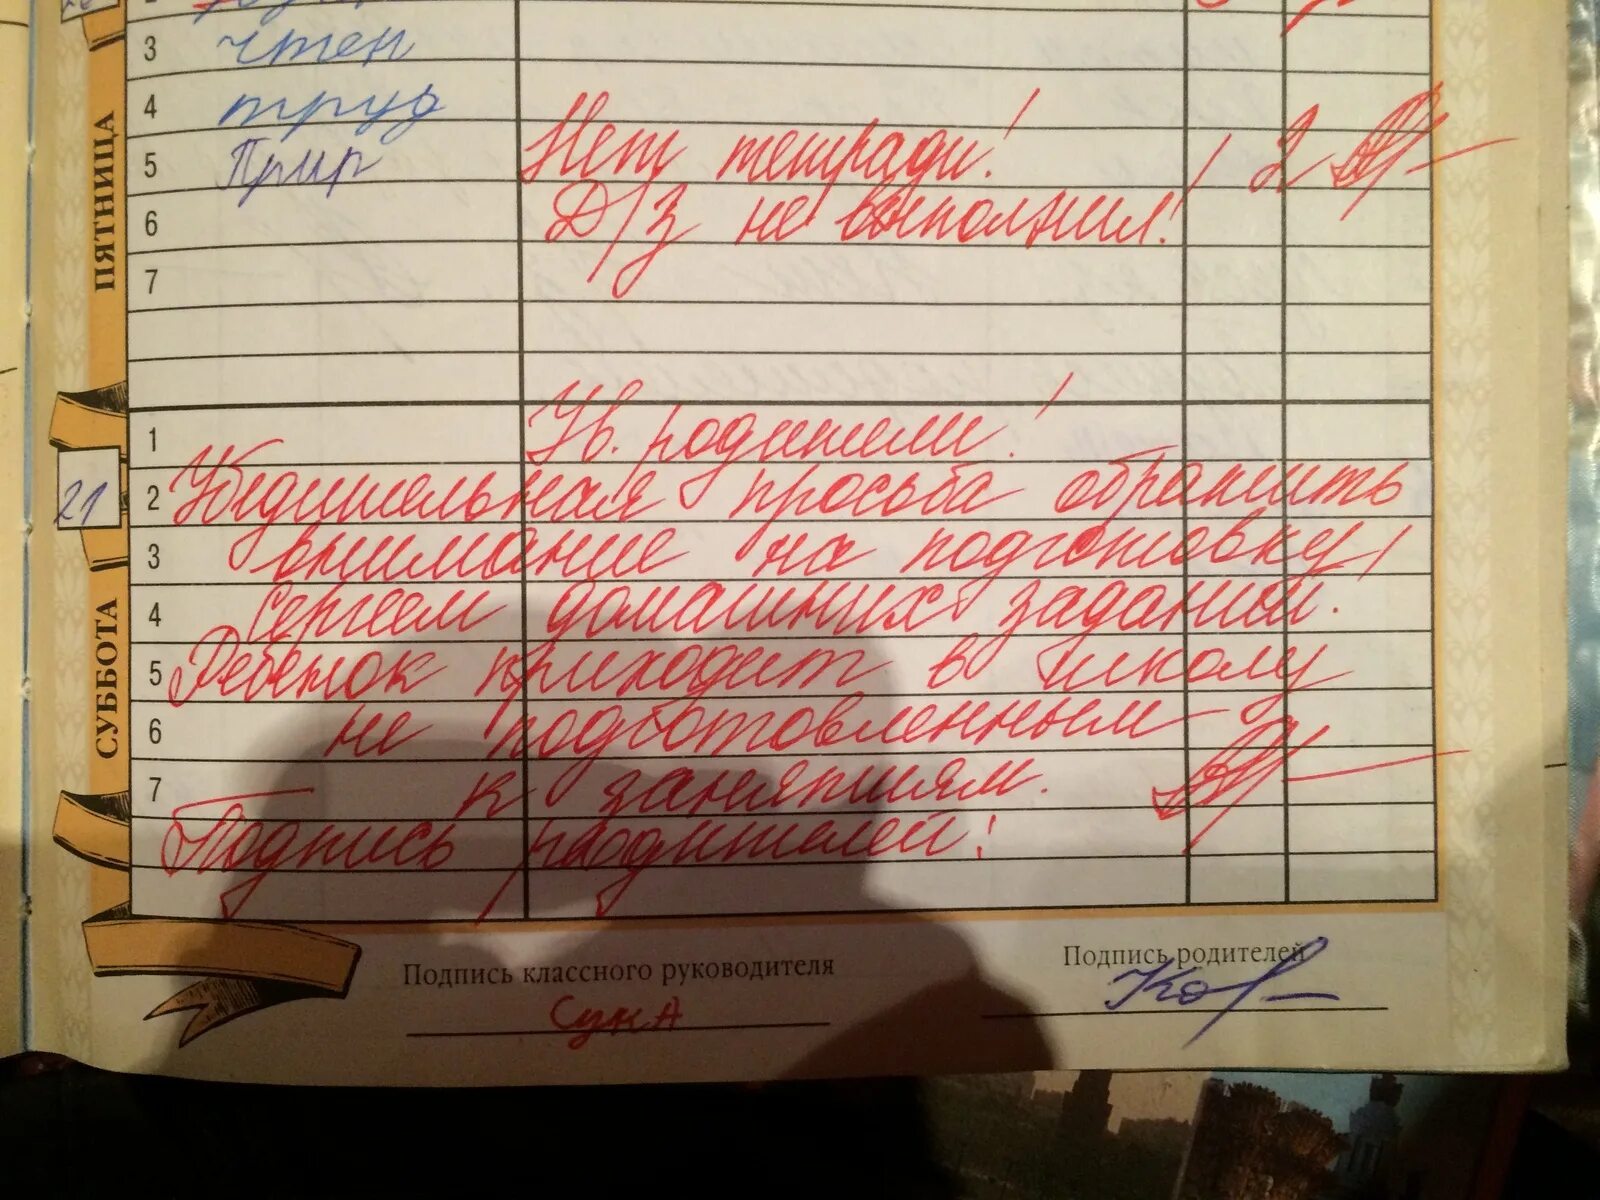 3 чтен
4 труд
5 Прир Нет тетради! 2
6 Д/З не выполнил!
7
ПЯТНИЦА
1 Ув. родители!
21
2 Убедительная просьба обратить
3 внимание на подготовку
4 Сергеем домашних заданий!
5 Ребенок приходит в школу
6 не подготовленным
7 к занятиям.
Подпись родителей:
СУББОТА
Подпись классного руководителя
СукА
Подпись родителей